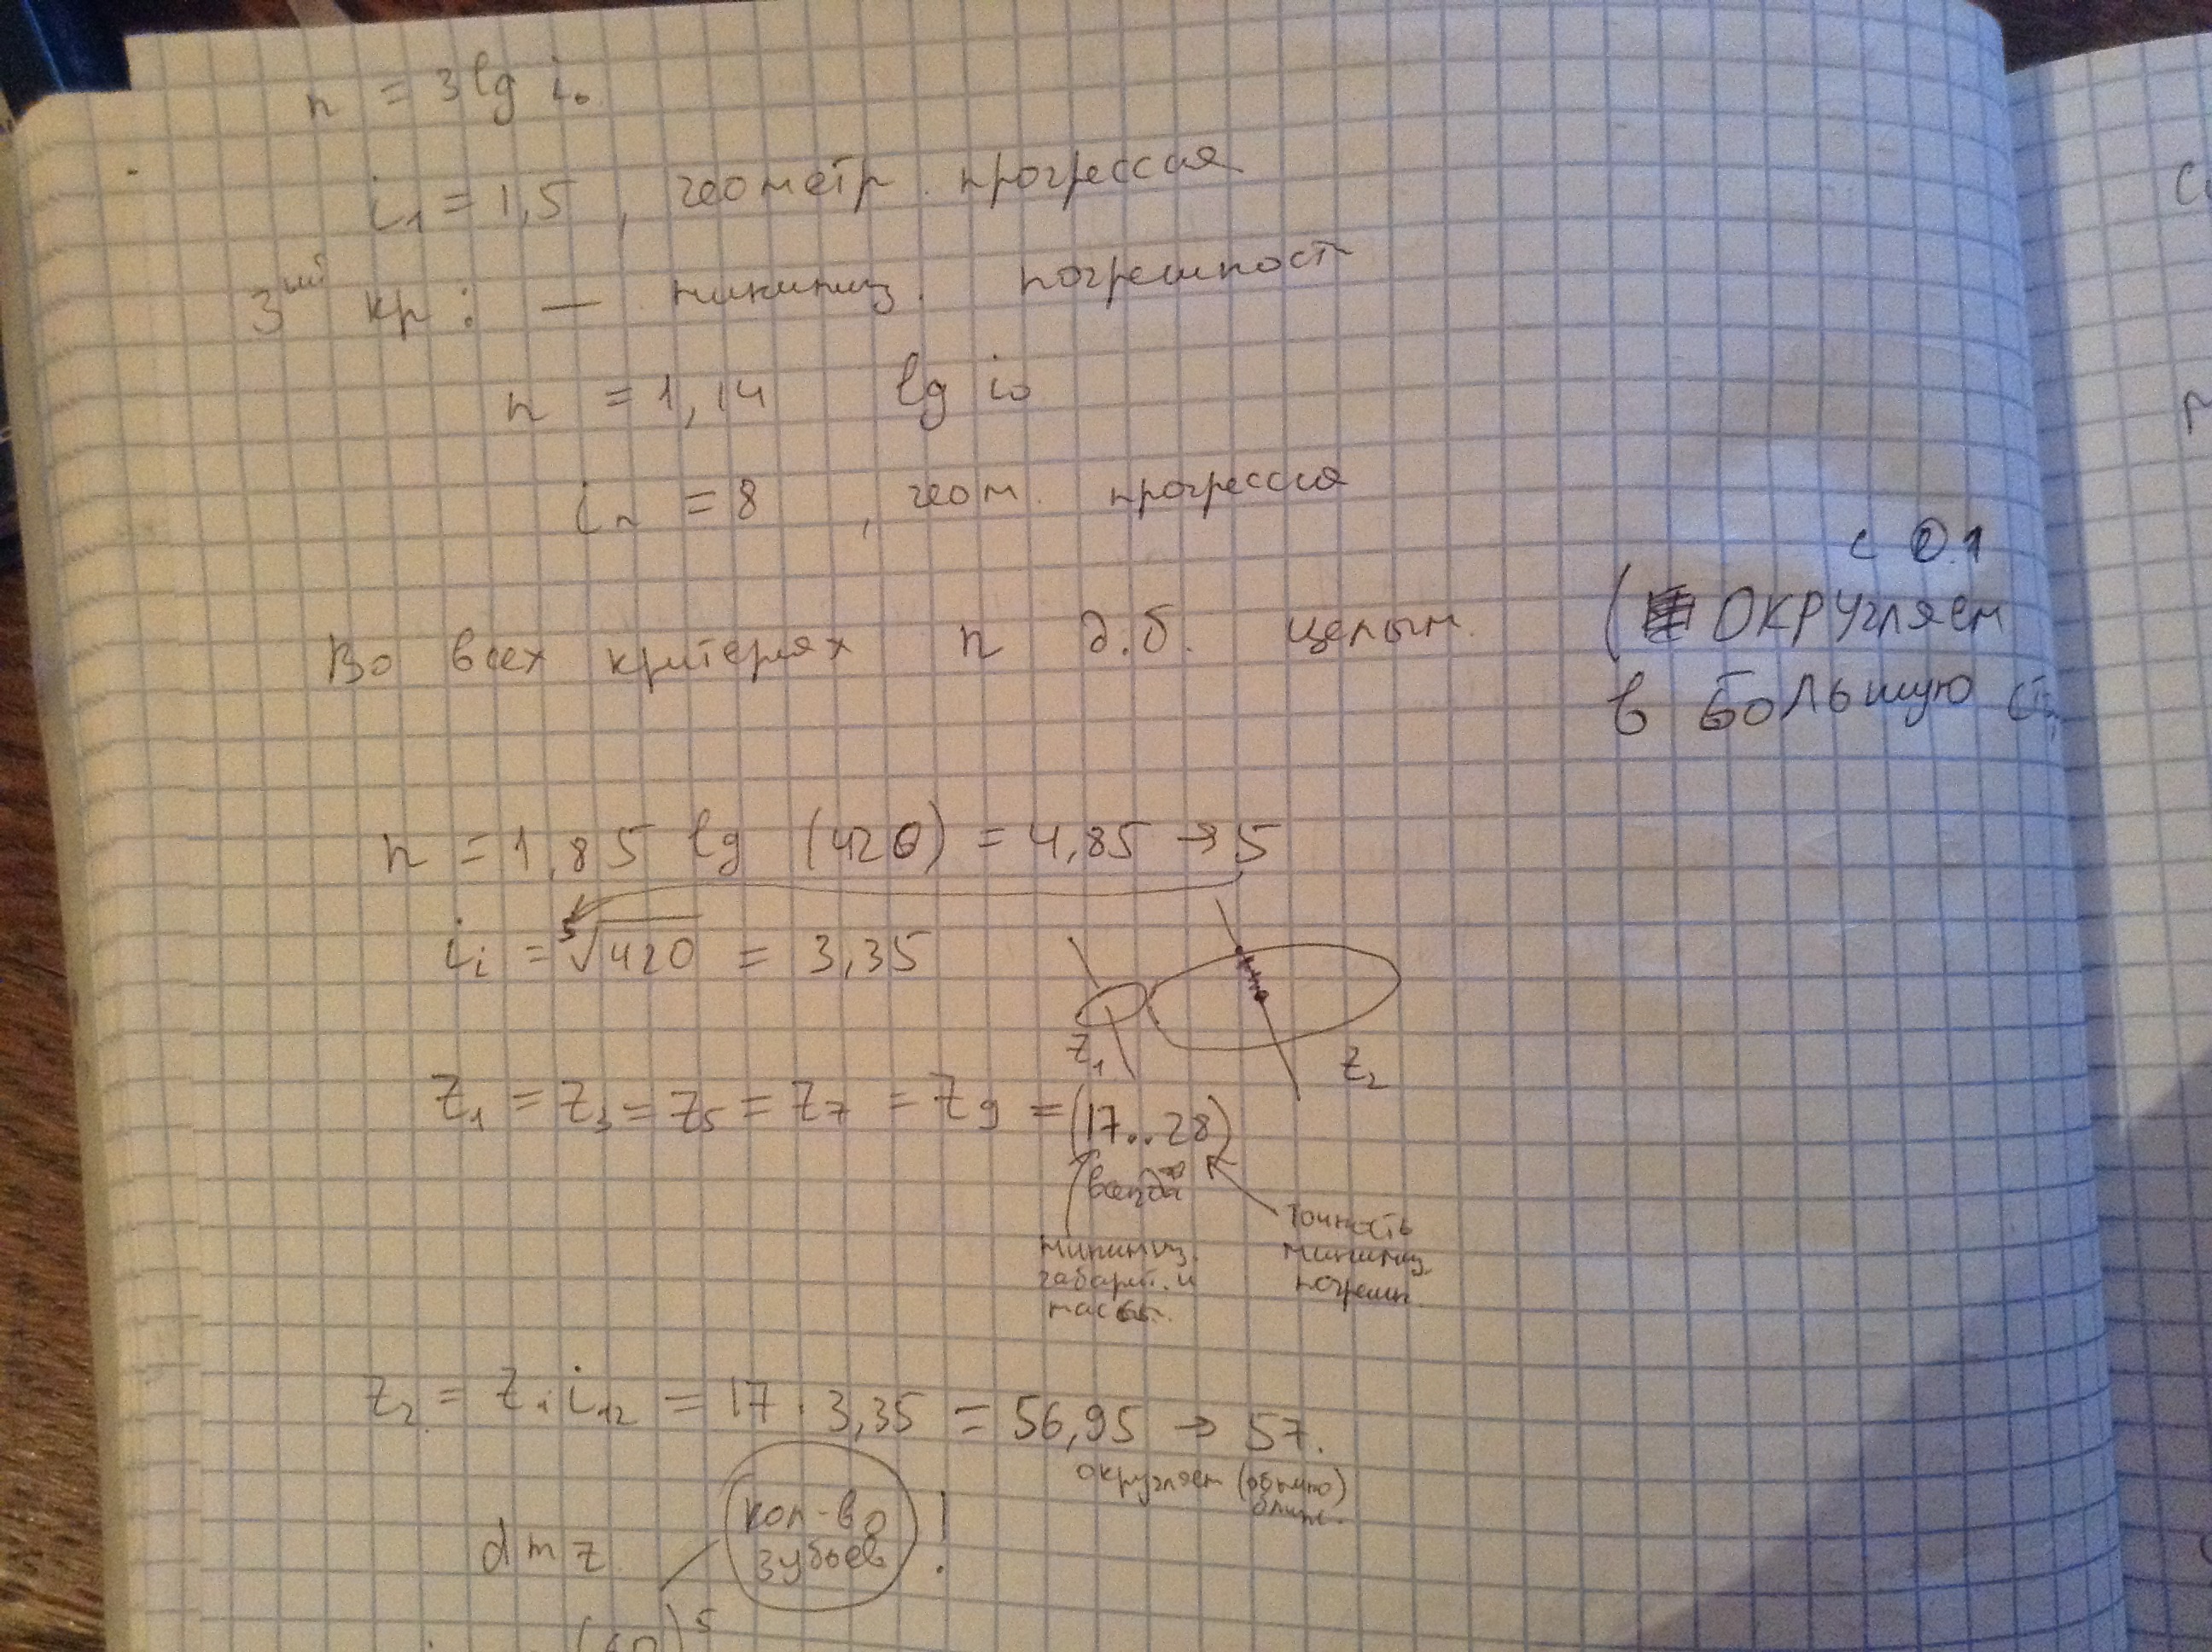 n = 3 lg i₀
i₁ = 1,5 , геометр. прогрессия
3ий кр: — минимиз. погрешност
n = 1,14 lg i₀
iₙ = 8 , геом. прогрессия
Во всех критериях n д.б. целым.
(с 0.1
округляем
в большую
n = 1,85 lg (420) = 4,85 → 5
iᵢ = ⁵√420 = 3,35
z₁ z₂
z₁ = z₃ = z₅ = z₇ = z₉ = (17..28)
всегда
миним​из.
габарит. и
массы.
точность
минимиз.
погрешн.
z₂ = z₁ i₁₂ = 17 · 3,35 = 56,95 → 57.
округляем (обычно)
ближ.
d m z
кол-во
зубьев !